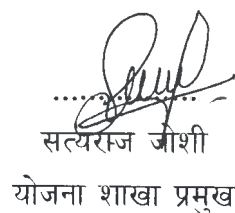 सत्यराज जोशी
योजना शाखा प्रमुख